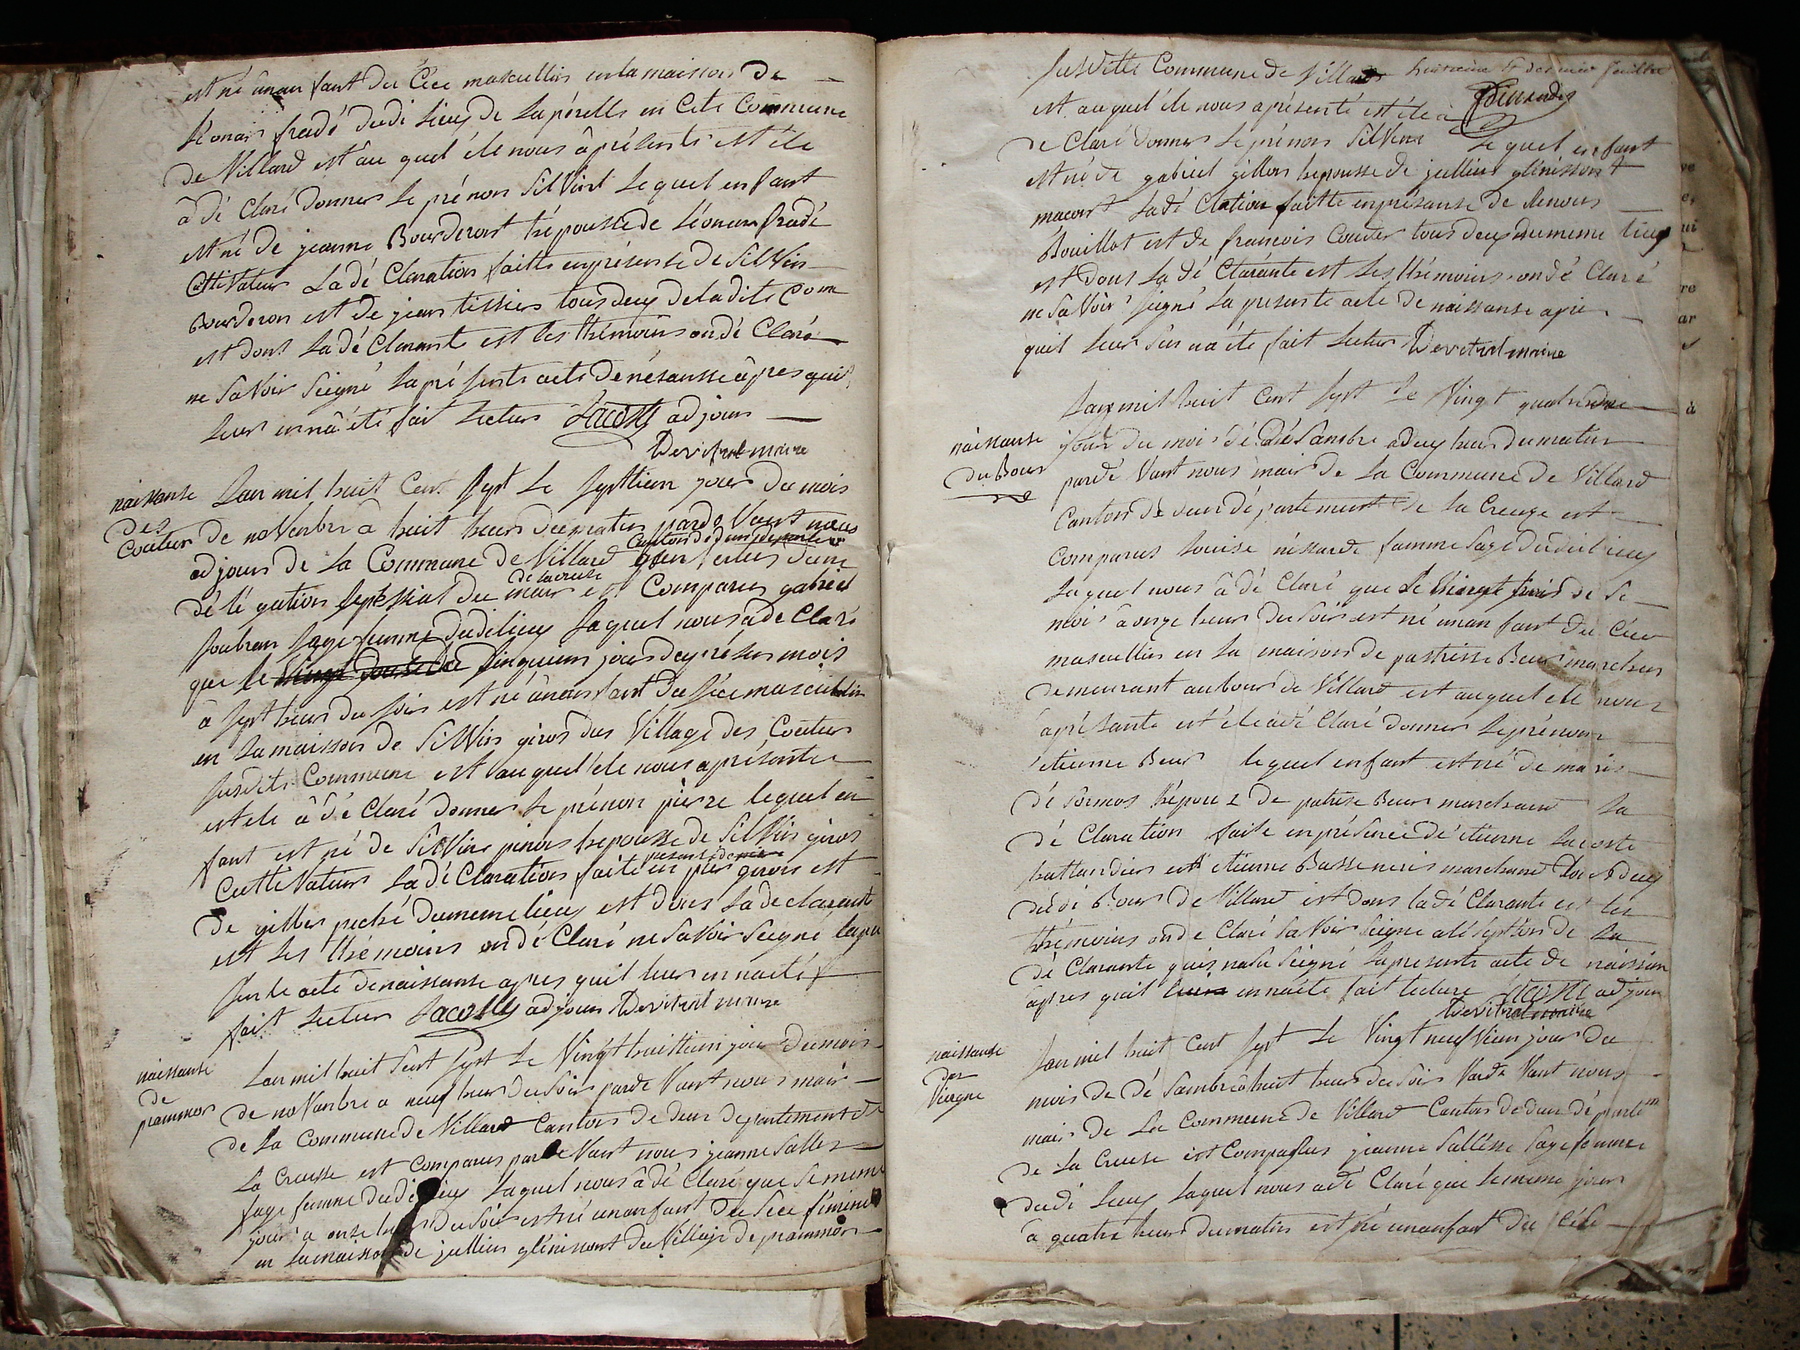 est né unan fant du Cece mascullin en la maison de
léonard fradé dudi lieuy de la pérelle en Cete Commune
de Villard est au quel éle nous à présenté est éle
à dé Claré donner le prénon Silvint lequel en fant
est né de jeanne Bourderont hépousse de Léonar fradé
Culltivateur La dé Claration faitte en présense de Silvin
Bourderon est de jean tissier tous deuy de ladite Com
est dont La dé Clarante est les thémoins on dé Claré
ne savoir Seigné La présente acte de nésansse à pres quil
leur en nà été fait Lecture Lacoste ad joins
Devitrat maire
naissanse
des
Coutur
Lan mil huit Cent Sept Le Septtiem jour du mois
de noVenbre à huit heur du matin par de Vant nous
ad joins de La Commune de Villard Canton de dun départe
en Vertus dune
délégation Spéssial du maire est Comparus gabriel
de la creuse
Joubran Sage femme dudi lieuy laquel nous a dé Claré
que le Sinquiem jour du présen mois
à Sept heur du soir est né unan fant du Séce mascullin
en La maison de SilVin giros du Village des Coutur
Susdite Commune est au quel éle nous a présenter
est éle à dé Claré donner Le prénon pierre lequel en
fant est né de SilVine hépousse de SilVin giros
CulltiVateur La dé Claration faite en pier giros est
de gilber peché du meme lieuy est dont La de clarant
est les thémoins on dé Claré ne saVoir Seigné la pré
sente acte de naissanse apres quil leur en na été
fait Lectur Lacoste ad joins Devitrat maire
naissanse
de
prammon
Lan mil huit Sent Sept Le Vingt huittiem jour du mois
de noVanbre a neuf heur du Soir par de Vant nous mair
de La Commune de Villard Canton de dun departement de
La Creusse est comparus par de Vant nous jeanne Salles
Sage femme dudi lieuy laquel nous à dé Claré que Le meme
jour a onze heur du Soir est né unan fant du Sece féminin
en La maison de jullien glénisont du Village de prammon
Susditte Commune de Villard huitieme & dernier feuillet
est au quel éle nous a présenté est éle à
de Claré donner Le prénon SilVine Le quel en fant
est né de gabriel gillon hepousse de jullien glénissont
macon La dé Claration faitte en présanse de Renous
Bouillot est de francois Couter tous deuy du meme lieuy
est dont La dé Clarante est Les thémoins on dé Claré
ne saVoir Seigné La presente acte de naissanse apre
quil leur en na été fait Lectur Devitrat maire
naissanse
du Bour
Lan mil huit Cent Sept Le Vingt quatrieme
jour du mois de déSanbre a deuy heur du matin
par dé Vant nous mair de La Commune de Villard
Canton de dun département de La Creuze est
Comparus Louise néssarde famme Sage dudit lieuy
Laquel nous à dé Claré que Le Vingt trois de Ce
mois à onze heur du Soir est né unan fant du Céce
mascullin en La maison de patrisse Beur marchan
demeurant au bour de Villard est auquel elle nous
à présante est éle à dé Claré donner Le prénon
étienne Beur lequel enfant est né de marie
hépouse de patrise Beur marchand La
dé Claration faite en présence de étienne Lacoste
est étienne Bussenerie marchand tous deuy
dudi Bour de Villard est dont la dé Clarante est les
thémoins on dé Claré saVoir Seigne a léséption de La
dé Clarante qui na su Seigné La presente acte de naissan
àpres quil en na été fait lecture Lacoste ad join
Devitrat maire
naissanse
des
Viergne
Lan mil huit Cent Sept Le Vingt neufVieme jour du
mois de dé Sambre à huit heur du Soir par de Vant nous
mair de La Commune de Villard Canton de dun départem
de La Creuse est Comparus jeanne Sallesse Sage femme
dudi Lieuy Laquel nous a dé Claré que Le meme jour
à quatre heur du matin est né unan fant du Céce